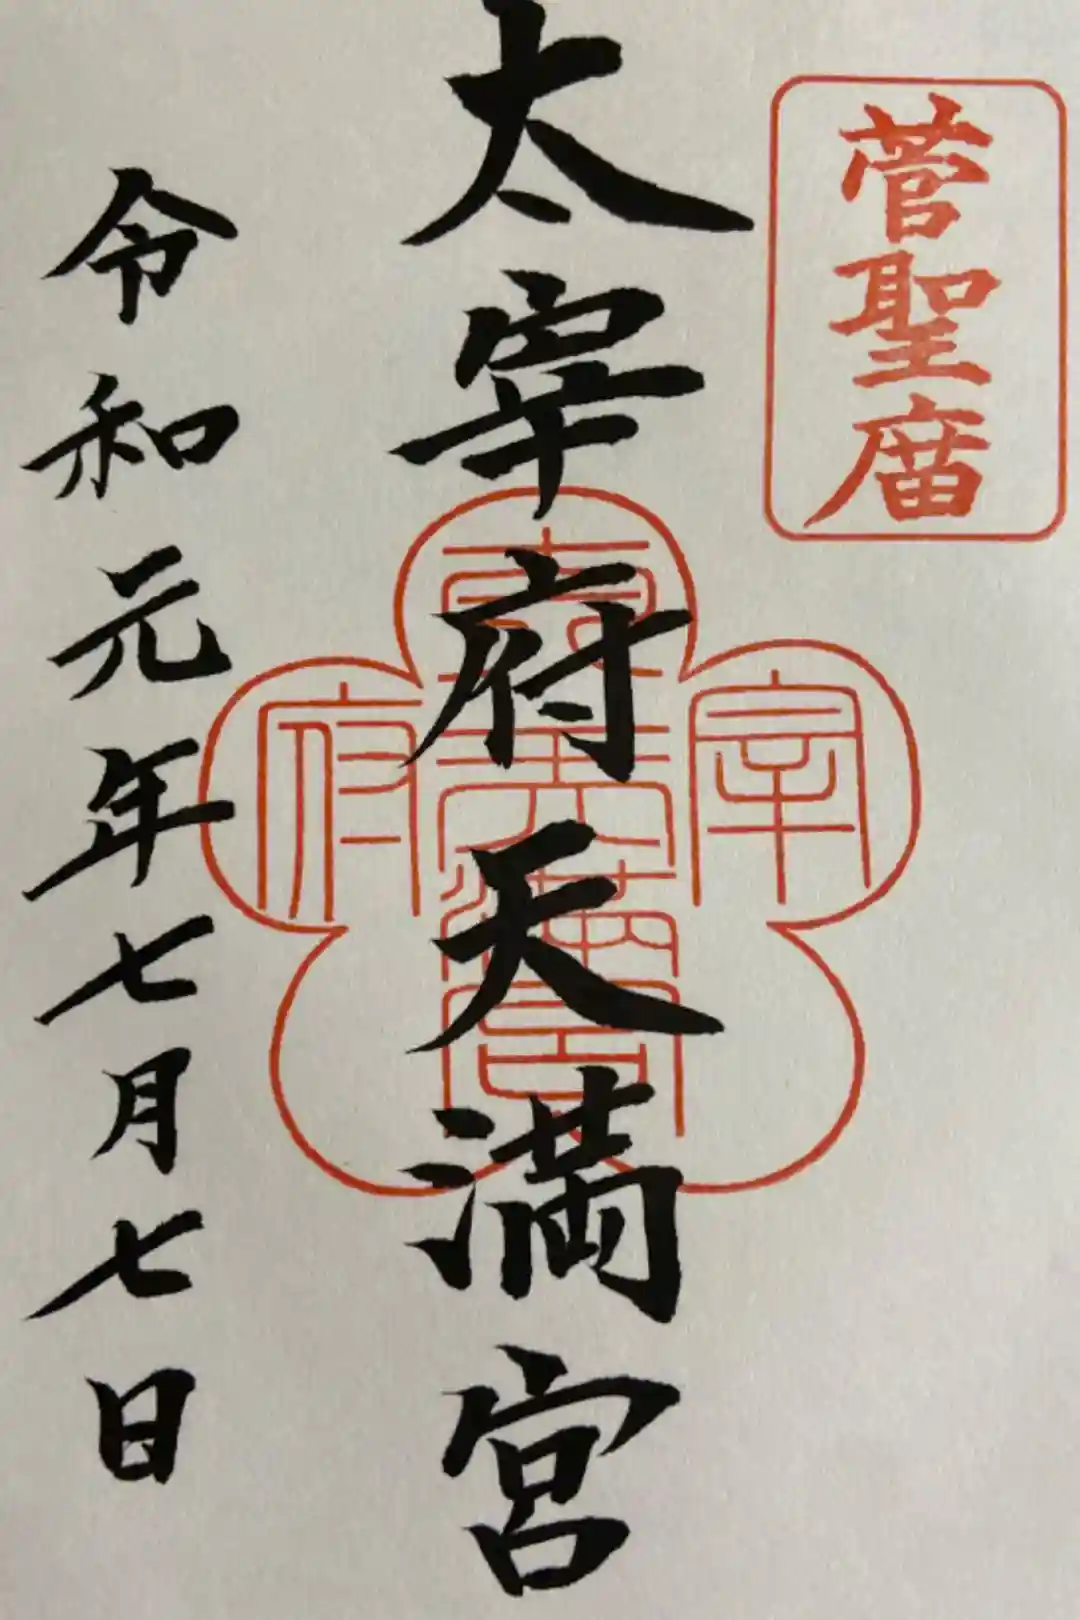 菅聖庿
太宰府天満宮
令和元年七月七日